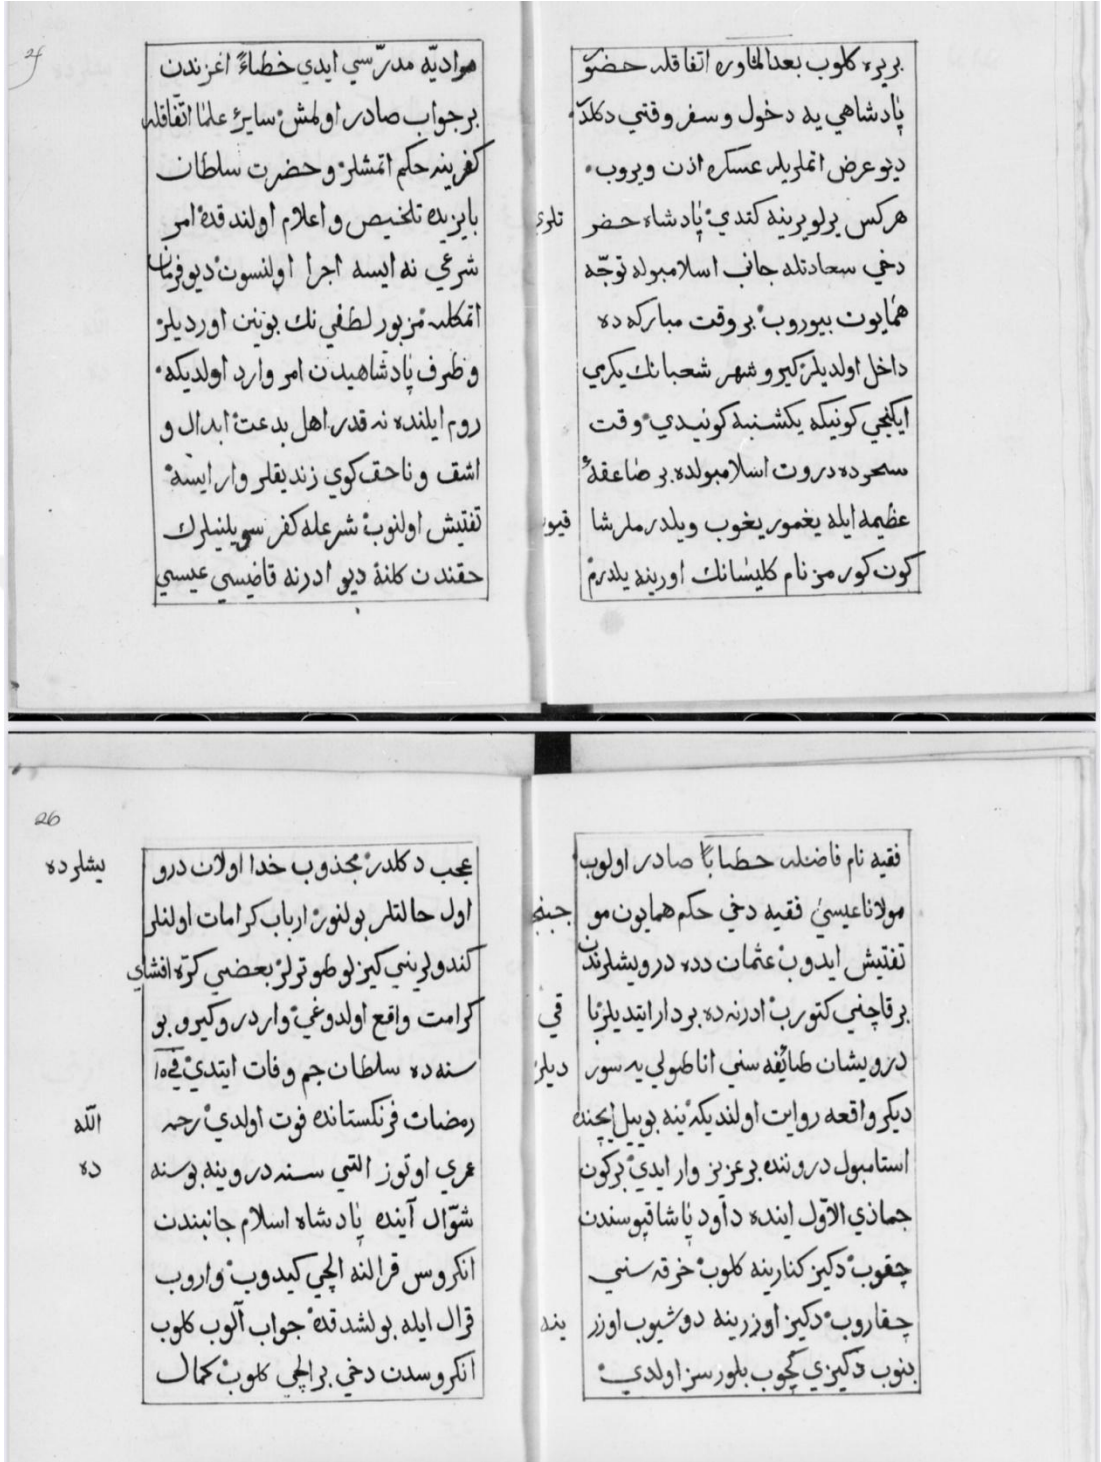 بربره كلوب بعد المخاوره اتفاقله حضرت
پادشاهي يه دخول و سفر وقتي دكلدر
ديو عرض اتملريله عسكره اذن ويروب
هركس يرلو يرينه كتدي پادشاه حضر تلري
دخي سعادتله جانب اسلامبوله توجّه
همايون بيوروب بر وقت مباركه ده
داخل اولديلر كيرو شهر شعبانك يكرمي
ايكنجي كونيكه يكشنبه كونيدي وقت
سحرده درون اسلامبولده بر صاعقهٔ
عظيمه ايله يغمور يغوب ويلدرملر شا قيوب
كون كورمز نام كليسانك اورينه يلدرم
مراديّه مدرّسي ايدي خطاءً اغزندن
بر جواب صادر اولمش سايرٔ علما اتّفاقله
كفرينه حكم اتمشلر و حضرت سلطان
بايزيده تلخيص و اعلام اولندقده امر
شرعي نه ايسه اجرا اولنسون ديو فرمان
اتمكله مزبور لطفي نك بويننى اورديلر
و طرف پادشاهيدن امر وارد اولديكه
روم ايلنده نه قدر اهل بدعت ابدال و
اشق و ناحق كوي زنديقلر وار ايسه
تفتيش اولنوب شرعله كفر سويلينلرك
حقندن كلنه ديو ادرنه قاضيسي عيسي
فقيه نام فاضله خطاباً صادر اولوب
مولانا عيسى فقيه دخي حكم همايون مو جبنجه
تفتيش ايدوب عثمان دده درويشلرندن
بر قاچني كتورب ادرنه ده بردار ايتديلر با قي
درويشان طائفه سني اناطولي يه سور ديلر
ديكر واقعه روايت اولنديكه ينه بو ييل ايچنده
استامبول دروننده بر عزيز وار ايدي بركون
جماذي الاوّل اينده داود پاشا قپوسندن
چقوب دكيز كنارينه كلوب خرقه سني
چقاروب دكيز اوزرينه دوشيوب اوزر ينه
بنوب دكيزي كچوب بلورسز اولدي
26
عجب دكلدر مجذوب خدا اولان درو يشلرده
اول حالتلر بولنور ارباب كرامات اولنلر
كندولريني كيزلو طوترلر بعضي كرّه افشاي
كرامت واقع اولدوغي واردر و كيرو بو
سنه ده سلطان جم وفات ايتدي في ١٥
رمضان فرنكستانده فوت اولدي رحمه الله
عمري اوتوز التي سنه در و ينه بو سنه ده
شوّال آينده پادشاه اسلام جانبندن
انكروس قرالنه الچي كيدوب واروب
قرال ايله بولشدقده جواب آلوب كلوب
انكروسدن دخي بر الچي كلوب كمال